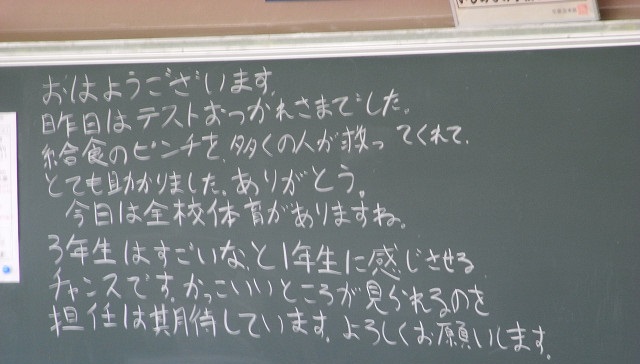 おはようございます。
昨日はテストおつかれさまでした。
給食のピンチを、多くの人が救ってくれて、
とても助かりました。ありがとう。
今日は全校体育がありますね。
3年生はすごいな、と1年生に感じさせる
チャンスです。かっこいいところが見られるのを
担任は期待しています。よろしくお願いします。